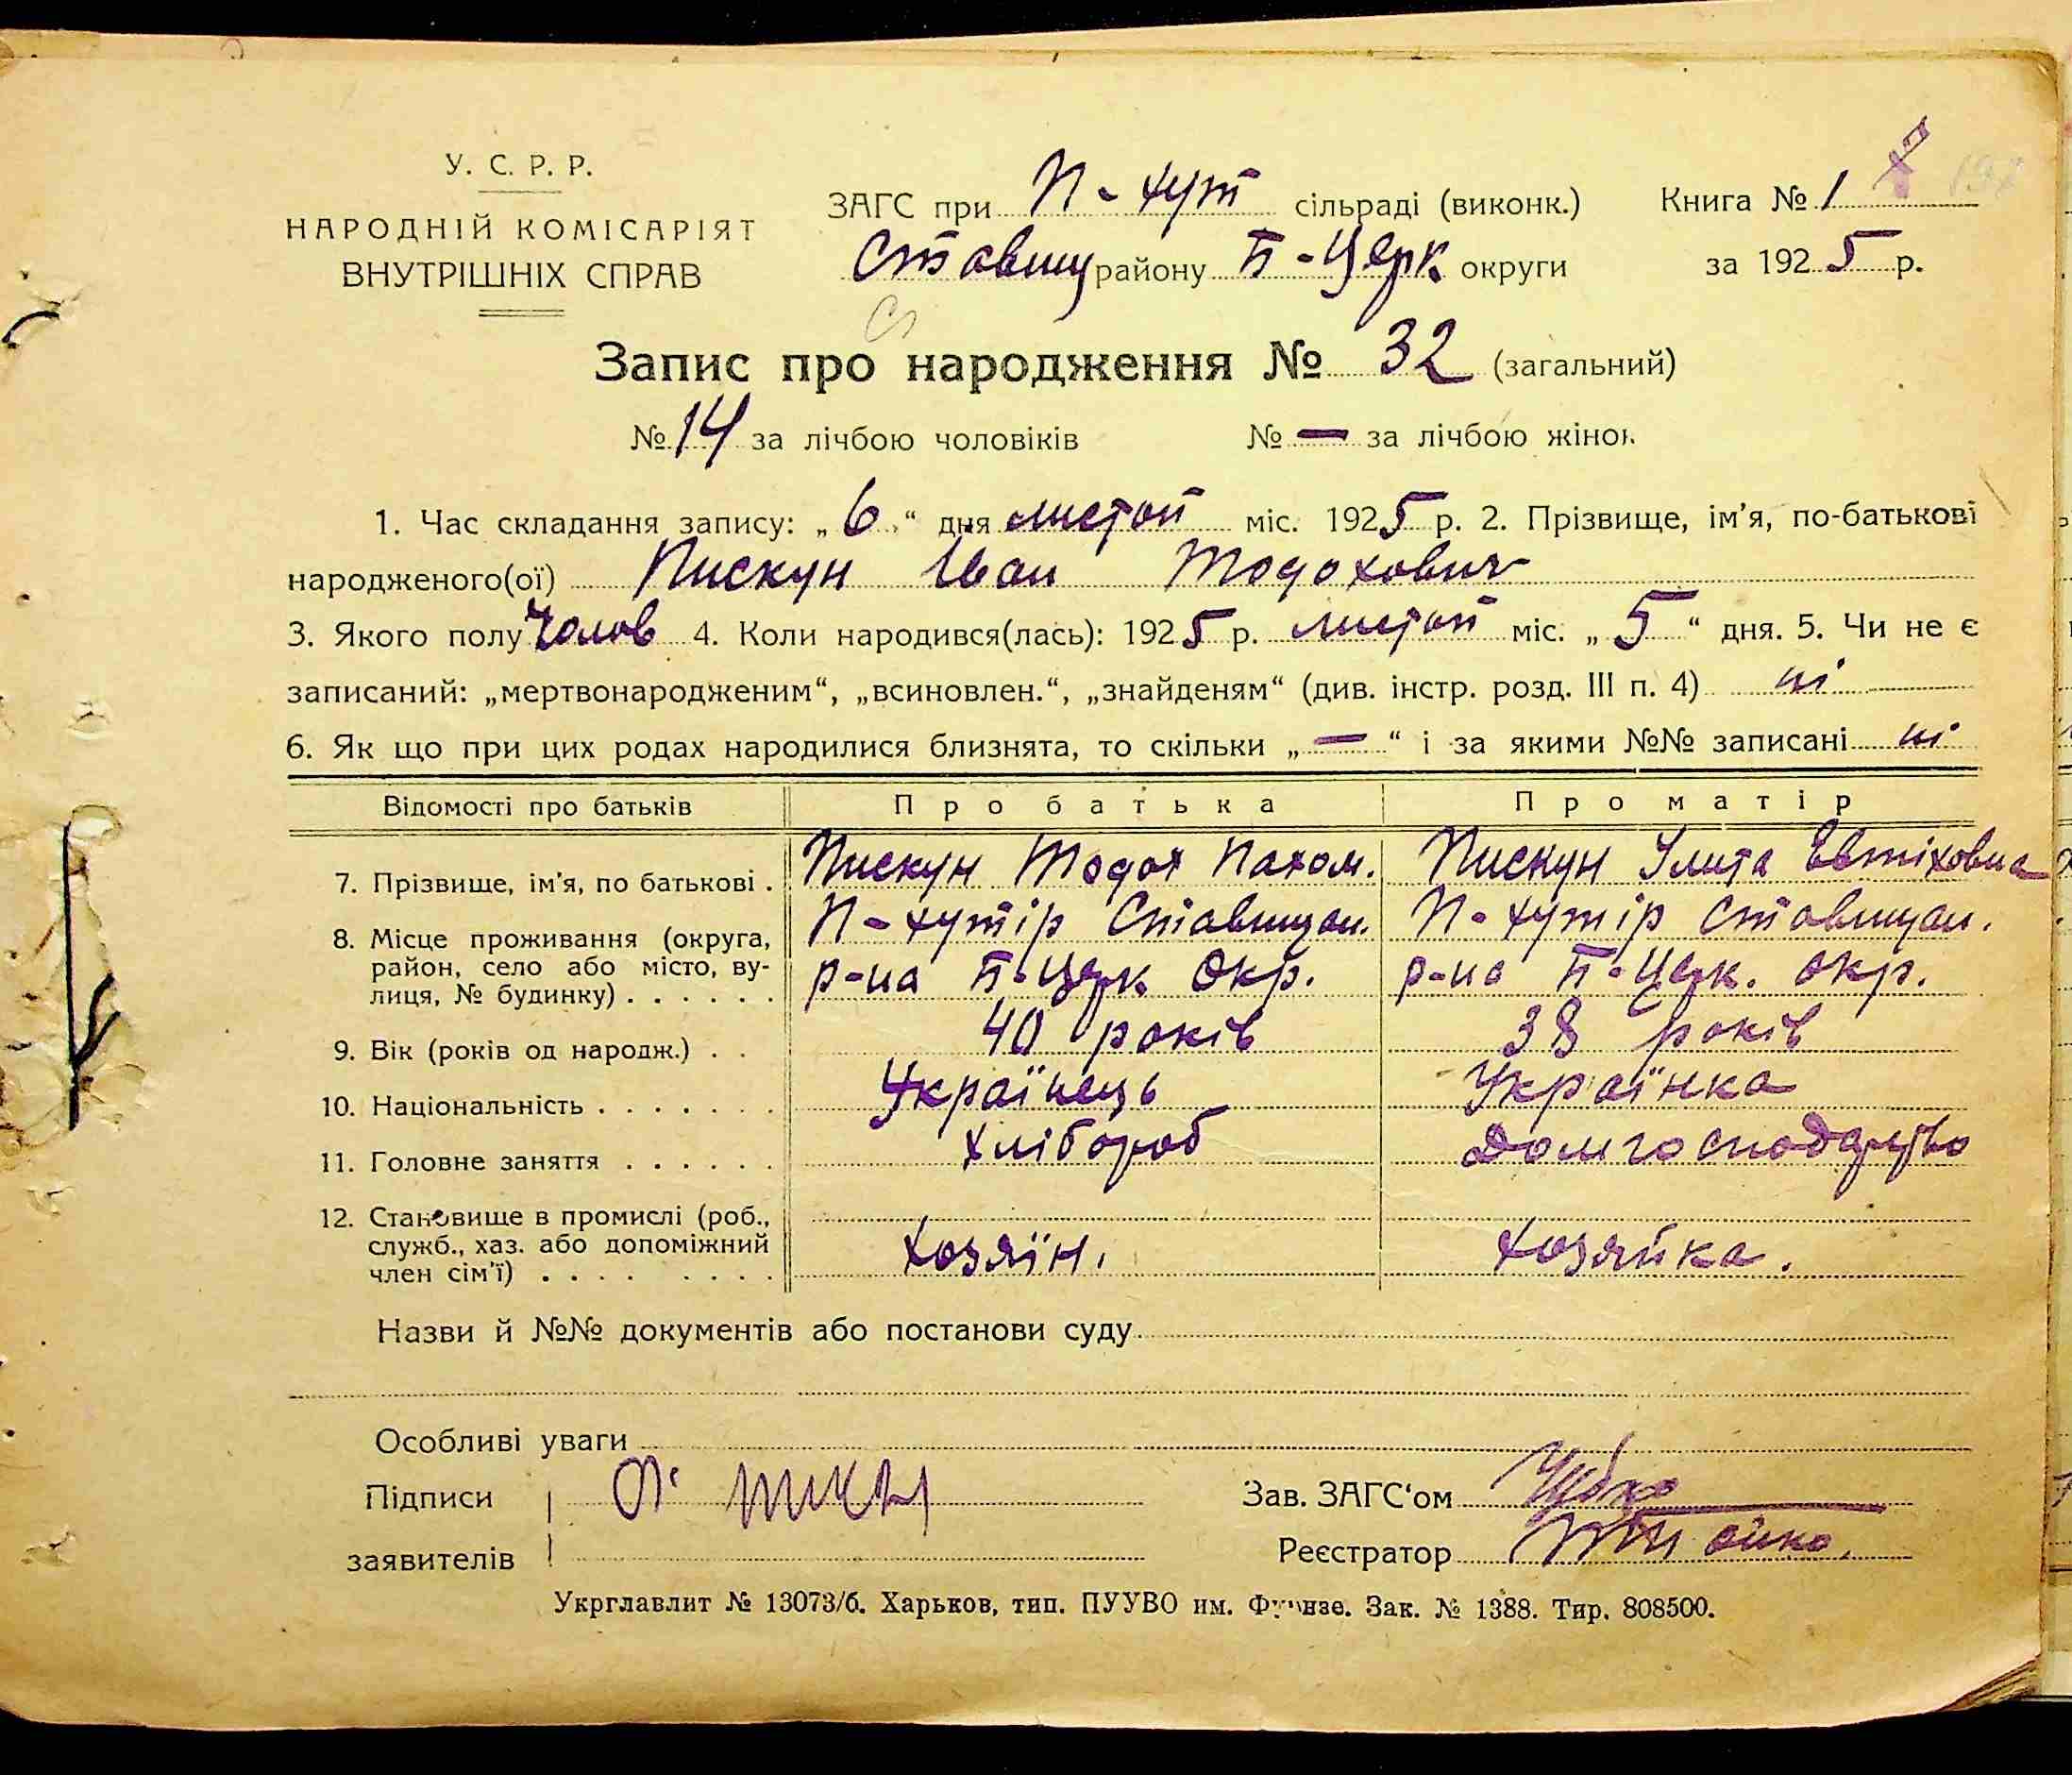 У. С. Р. Р.
НАРОДНІЙ КОМІСАРІЯТ
ВНУТРІШНІХ СПРАВ
ЗАГС при П-хут сільраді (виконк.) Книга № 1
Ставищ району Б-Церк округи за 1925 р.
Запис про народження № 32 (загальний)
№ 14 за лічбою чоловіків № — за лічбою жінок
1. Час складання запису: „6“ дня листоп міс. 1925 р. 2. Прізвище, ім'я, по-батькові
народженого(ої) Пискун Іван Тодохович
3. Якого полу Чолов 4. Коли народився(лась): 1925 р. листоп міс. „5“ дня. 5. Чи не є
записаний: „мертвонародженим“, „всиновлен.“, „знайденям“ (див. інстр. розд. III п. 4) ні
6. Як що при цих родах народилися близнята, то скільки „—“ і за якими №№ записані ні
Відомості про батьків Про батька Про матір
7. Прізвище, ім'я, по батькові . Пискун Тодох Пахом. Пискун Улита Евтіховна
8. Місце проживання (округа, П-хутір Ставищан. П-хутір Ставищан.
район, село або місто, ву- р-на Б-Церк Окр. р-на Б-Церк. окр.
лиця, № будинку) . . . . . .
9. Вік (років од народж.) . . 40 років 38 років
10. Національність . . . . . . . Українець Українка
11. Головне заняття . . . . . . хлібороб Домгосподарство
12. Становище в промислі (роб.,
служб., хаз. або допоміжний хозяїн. хозяйка.
член сім'ї) . . . . . . . .
Назви й №№ документів або постанови суду
Особливі уваги
Підписи Зав. ЗАГС'ом
заявителів Реєстратор
Укрглавлит № 13073/б. Харьков, тип. ПУУВО им. Фрунзе. Зак. № 1388. Тир. 808500.